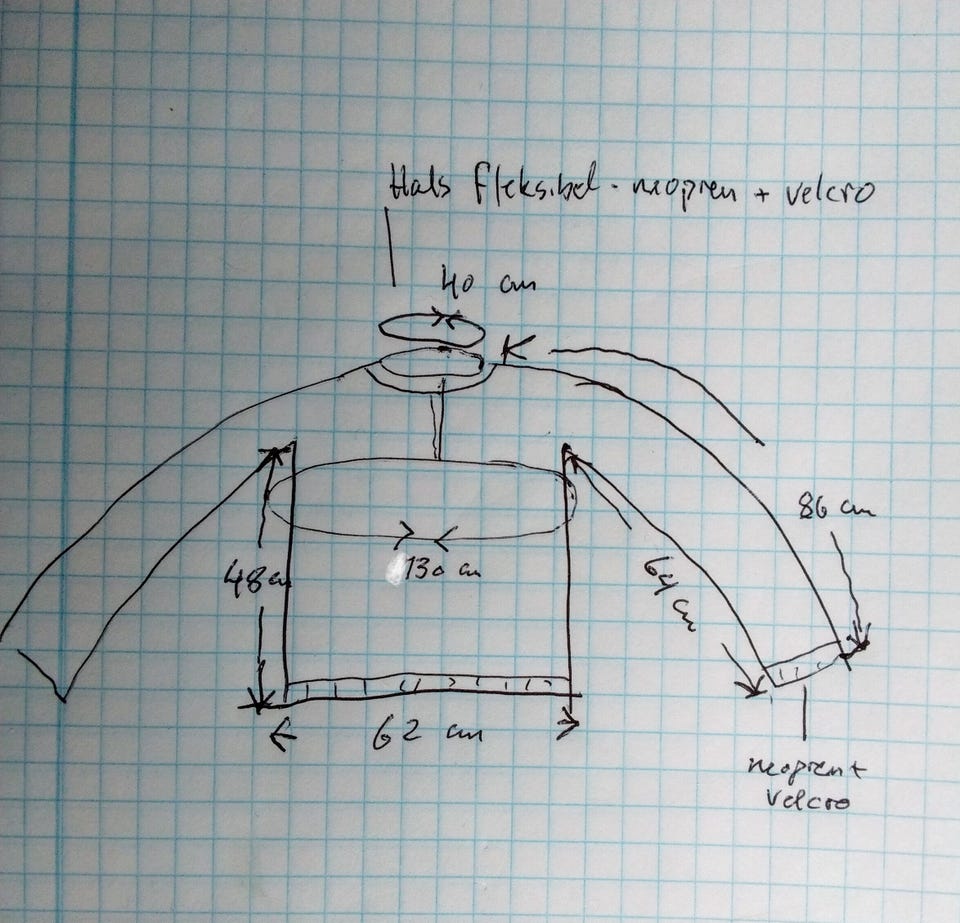 Hals fleksibel - neopren + velcro
40 cm
86 cm
48 cm
130 cm
64 cm
62 cm
neopren +
velcro